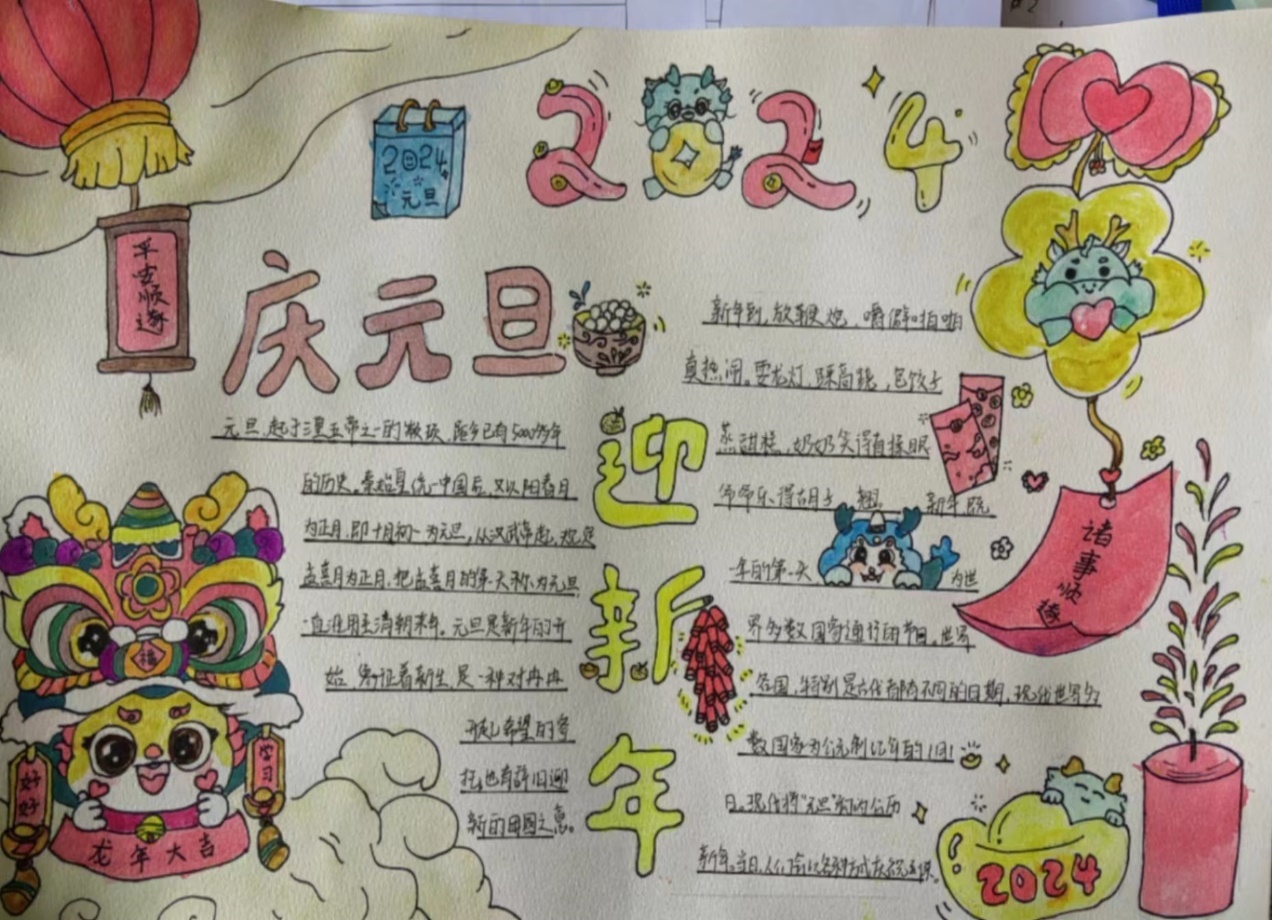 2024
2024
元旦
平安顺遂
庆元旦
元旦,起于三皇五帝之一的颛顼,距今已有5000多年
的历史。秦始皇统一中国后,又以阳春月
为正月,即十月初一为元旦,从汉武帝起,规定
孟喜月为正月,把孟喜月的第一天称为元旦
一直沿用至清朝末年。元旦是新年的开
始,象征着新生,是一种对冉冉
升起希望的寄
托,也有辞旧迎
新的团圆之意。
好好
学习
福
龙年大吉
迎
新
年
新年到,放鞭炮,噼噼啪啪
真热闹。耍龙灯,踩高跷,包饺子
蒸甜糕,奶奶笑得直揉眼
爷爷乐得胡子翘 新年既
一年的第一天 为世
界多数国家通行的节日。世界
各国,特别是古代都有不同的日期,现代世界多
数国家为公元制纪年的1月1
日。现代将"元旦"定为公历
新年。当日,人们会以各种方式庆祝
诸事顺遂
2024